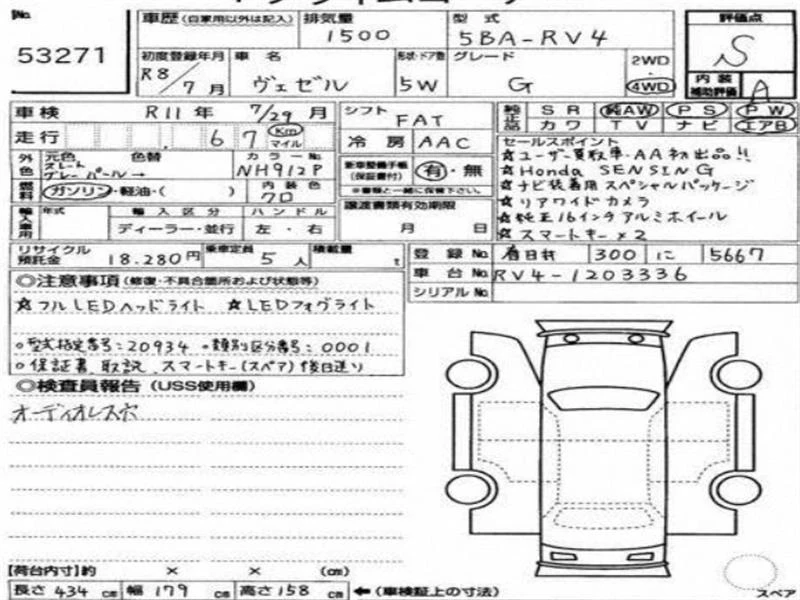 No. 53271
車歴 (自家用以外は記入) 排気量 1500 型式 5BA-RV4 評価点 S
初度登録年月 R8/7月 車名 ヴェゼル 形状・ドア数 5W グレード G 2WD・4WD 内装補助評価 A
車検 R11年 7/29月 シフト FAT 純正品 SR 純AW PS PW
走行 67 Km マイル 冷房 AAC カワ TV ナビ エアB
外色 元色 スレートグレーパール→ 色替 カラーNo. NH912P 新車整備手帳(保証書付) 有・無 ※書類と一緒に保管下さい。
燃料 ガソリン・軽油・( ) 内装色 クロ
輸入車用 年式 輸入区分 ディーラー・並行 ハンドル 左・右 譲渡書類有効期限 月 日
セールスポイント
☆ユーザー買取車・AA初出品!!
☆Honda SENSING
☆ナビ装着用スペシャルパッケージ
☆リアワイドカメラ
☆純正16インチアルミホイール
☆スマートキー×2
リサイクル預託金 18.280円 乗車定員 5人 積載量 t
登録No. 春日部 300 に 5667
車台No. RV4-1203336
シリアルNo.
◎注意事項 (修復・不具合箇所および状態等)
☆フルLEDヘッドライト ☆LEDフォグライト
○型式指定番号:20934 ○類別区分番号:0001
○保証書、取説、スマートキー(スペア)後日送り
◎検査員報告 (USS使用欄)
オーディオレス
【荷台内寸】約 × × (cm)
長さ 434 cm 幅 179 cm 高さ 158 cm ←(車検証上の寸法)
スペア